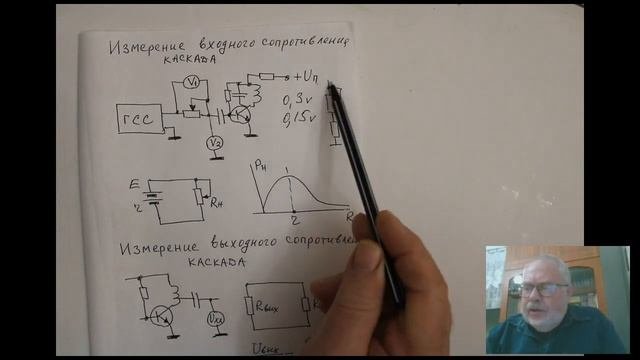 Измерение входного сопротивления
каскада
V1
+Uп
0,3v
ГСС
0,15v
V2
E
r
Rн
Pн
1
r
R
Измерение выходного сопротивлен
каскада
Rвых
Uвых